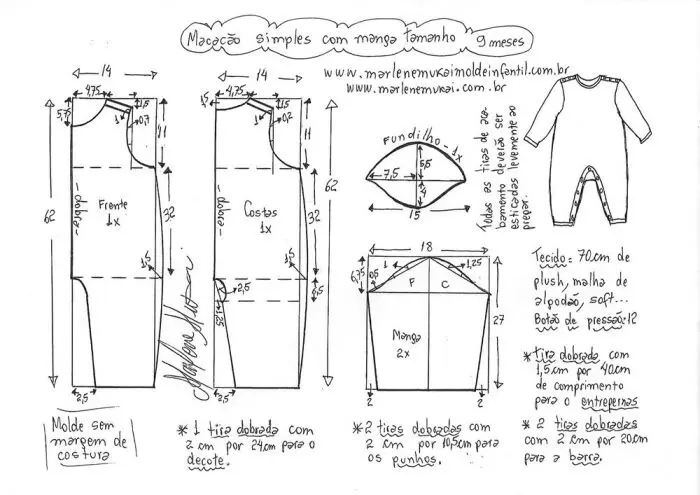 Macacão simples com manga tamanho 9 meses
www.marlenemukaimoldeinfantil.com.br
www.marlenemukai.com.br
14
4,75
1,5
5,75
1
0,7
11
62
dobra
Frente
1x
32
1,5
2,5
14
1,5
4,75
1,5
1
0,7
11
62
dobra
Costas
1x
32
1,5
2,5
6,5
1,25
2,5
Marlene Mukai
Fundilho - 1x
5,5
7,5
4
15
Todas as tiras de aca-
bamento deverão ser
esticadas levemente ao
pregar.
18
6,75
0,5
1
1,25
F
C
27
Manga
2x
2
2
Tecido: 70cm de
plush, malha de
algodão, soft...
Botão de pressão: 12
* tira dobrada com
1,5cm por 40cm
de comprimento
para o entrepernas
* 2 tiras dobradas
com 2cm por 20cm
para a barra.
Molde sem
margem de
costura
* 1 tira dobrada com
2cm por 24cm para o
decote.
* 2 tiras dobradas com
2cm por 10,5cm para
os punhos.